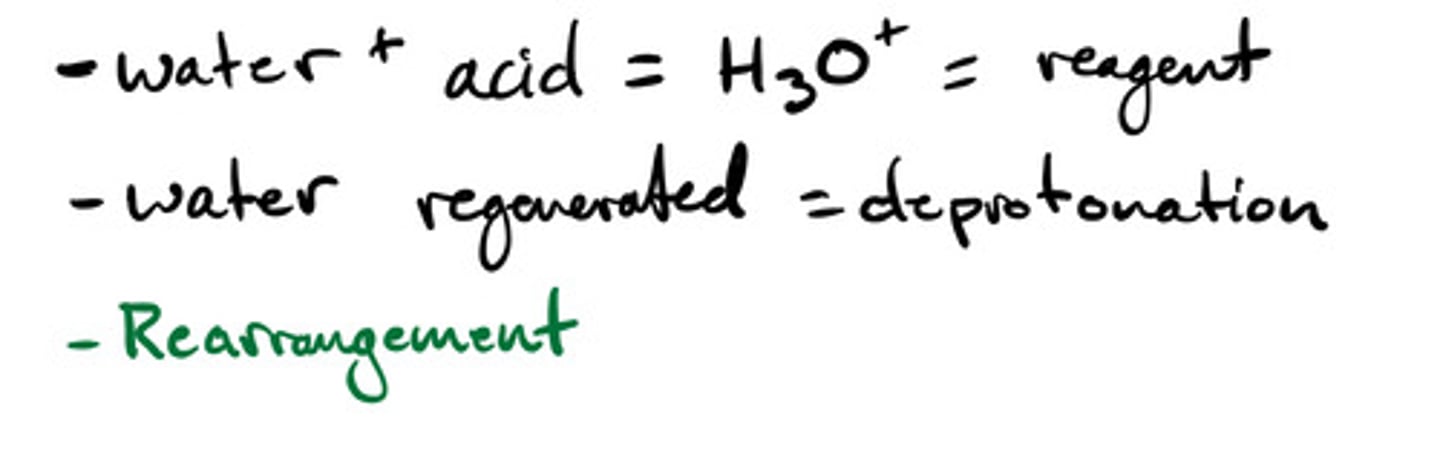 - water + acid = H₃O⁺ = reagent
- water regenerated = deprotonation
- Rearrangement